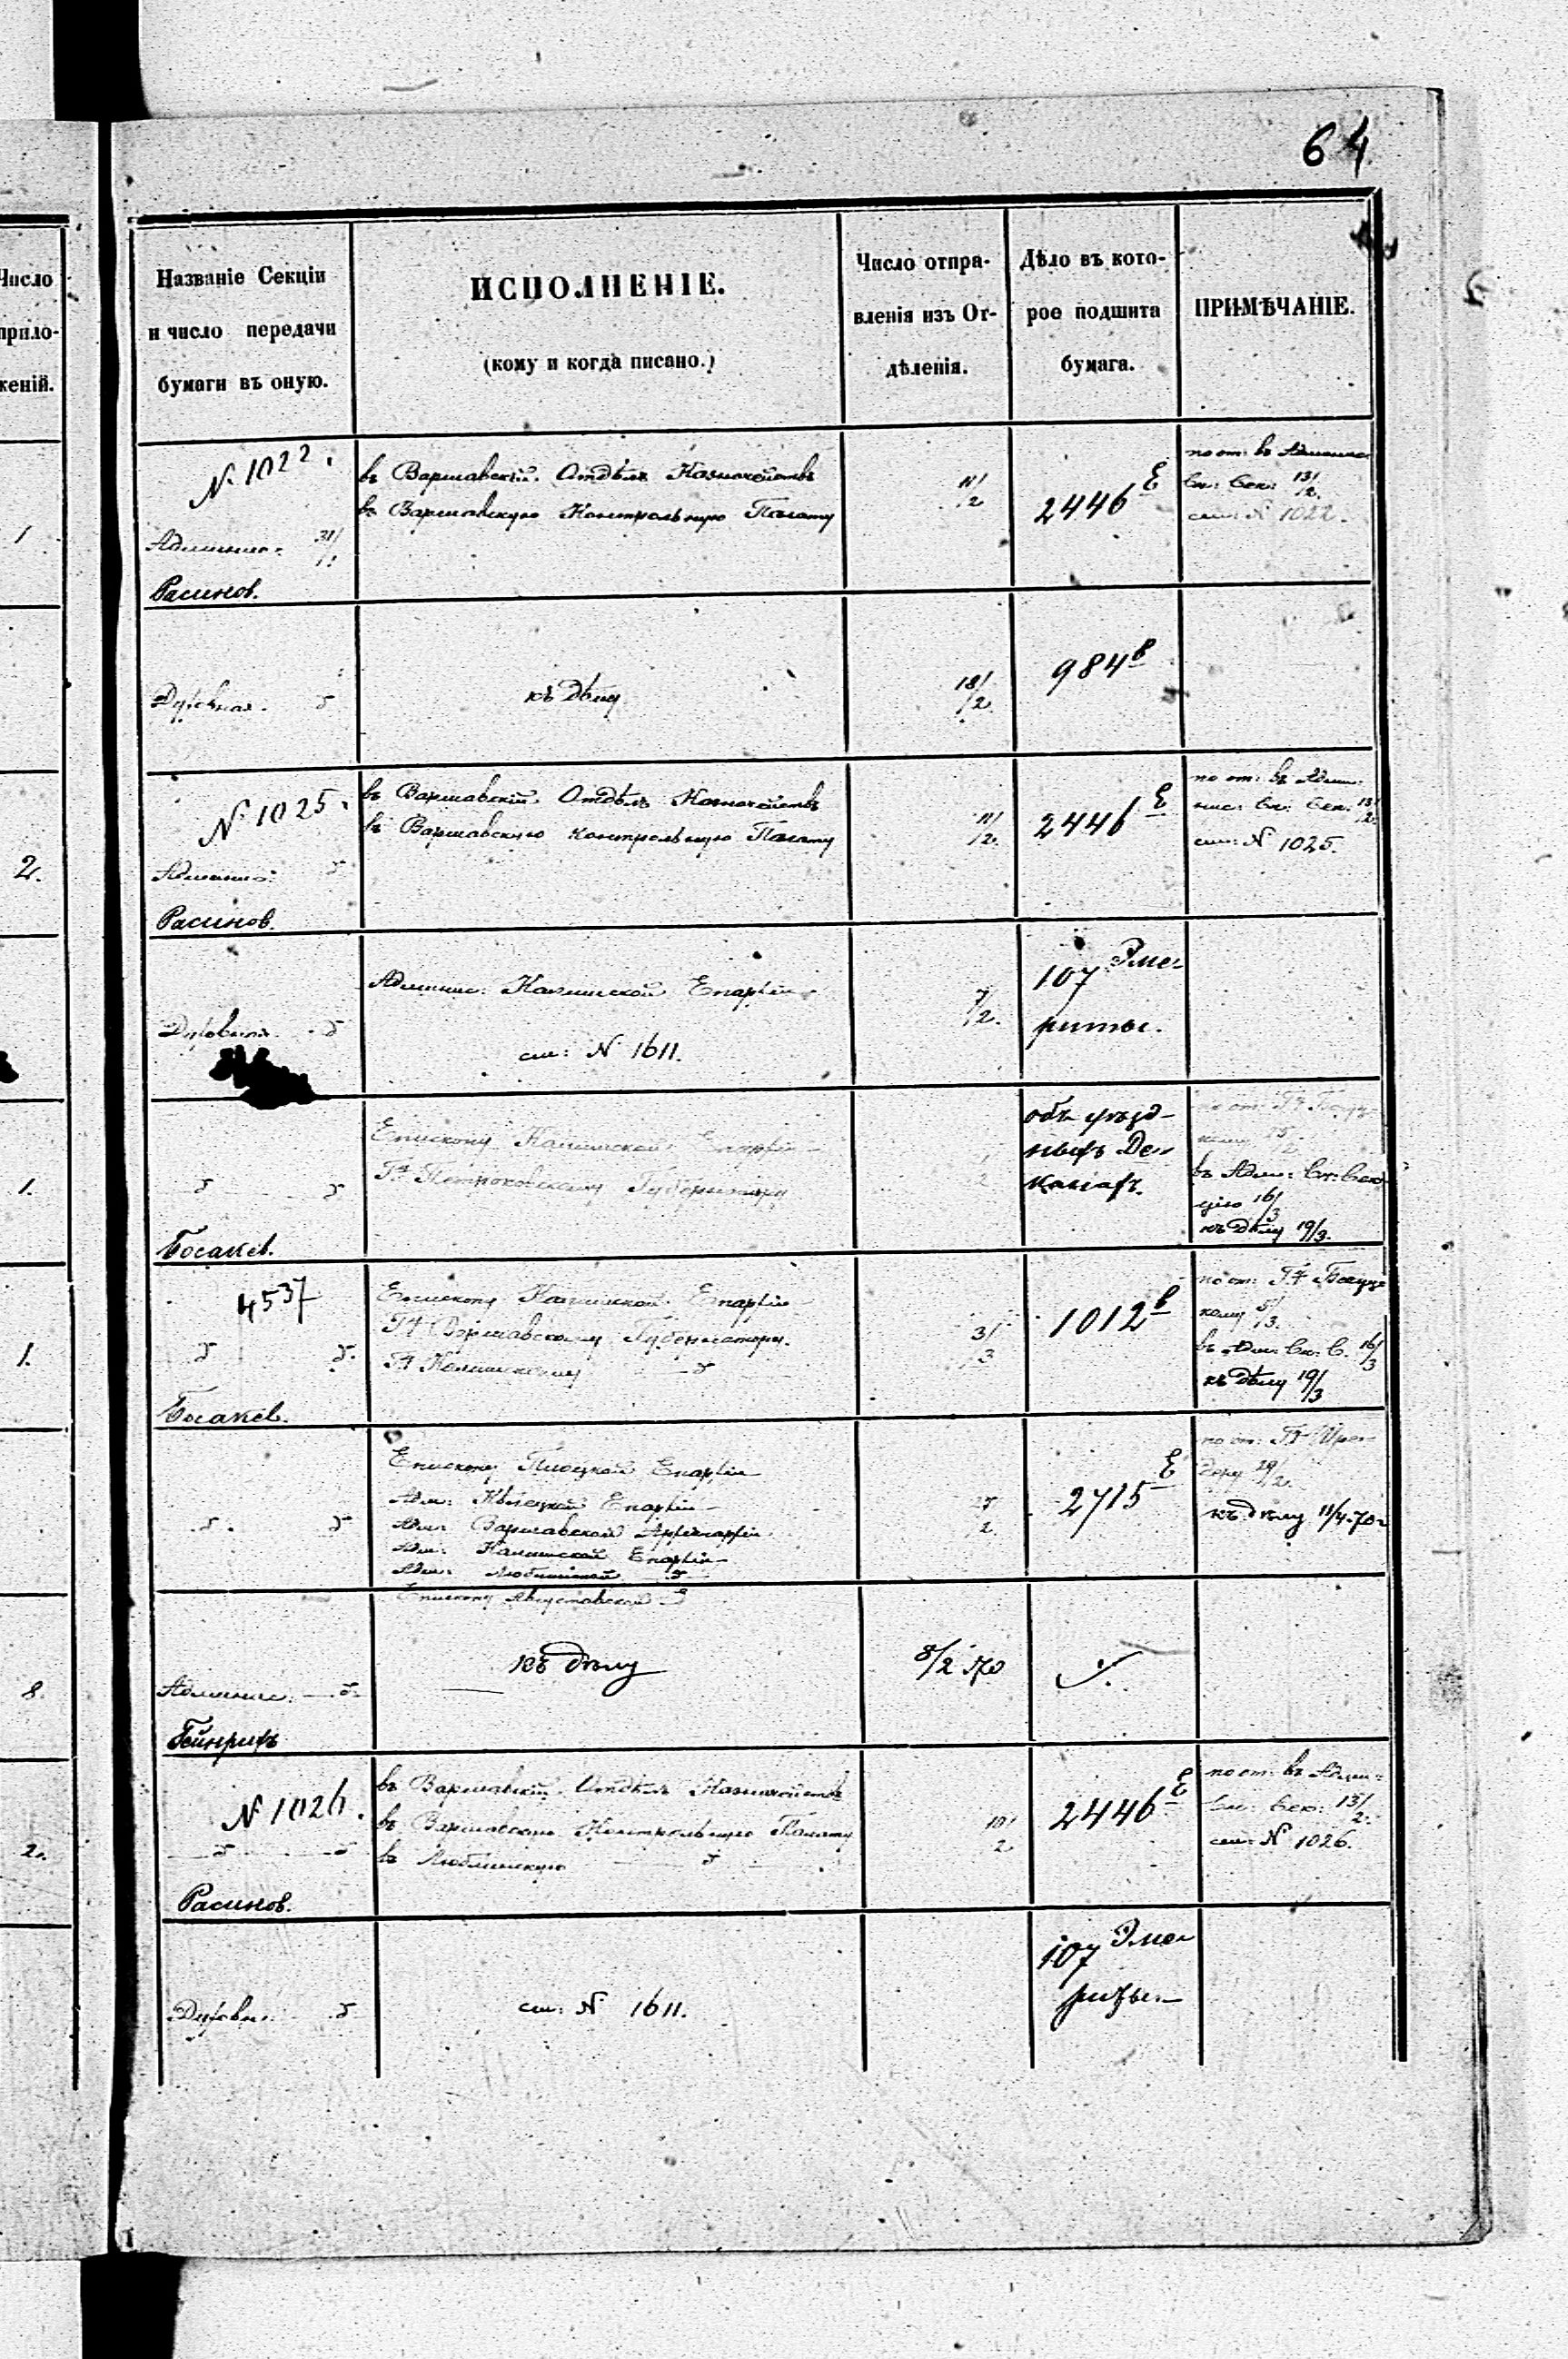 64
Число
прило-
женій.
Названіе Секціи
и число передачи
бумаги въ оную.
ИСПОЛНЕНІЕ.
(кому и когда писано.)
Число отпра-
вленія изъ От-
дѣленія.
Дѣло въ кото-
рое подшита
бумага.
ПРИМѢЧАНІЕ.
1
N. 1022.
Админис: 31/1.
Расинов.
въ Варшавскій Отдѣлъ Казначействъ
въ Варшавскую Контрольную Палату
11/2
2446 Е
по от: въ
Вк: Сек: 13/2.
см: N 1022.
Духовная.
къ дѣлу
18/2.
984 в
2.
N. 1025.
Админис:
Расинов.
въ Варшавскій Отдѣлъ Казначействъ
въ Варшавскую Контрольную Палату
11/2.
2446 Е
по от: въ Адми-
нис: Вк: Сек. 13/2.
см: N 1025.
Духовная.
Админис: Калишской Епархіи
см: N 1611.
7/2.
107 Эме-
риты.
1.
Епископу Калишской Епархіи
Гну Петроковскому Губернатору
объ уѣзд-
ныхъ Де-
канахъ.
по от: Гну
въ Адм: Вк: Сек-
цію 16/3
къ дѣлу 19/3.
1.
4537
Епископу Калишской Епархіи
Гну Варшавскому Губернатору.
Гну Калишскому
3/3
1012 в
по от: Гну
кому 5/3.
въ Адм: Вк: С. 16/3
къ дѣлу 19/3
Епископу Плоцкой Епархіи
Адм: Кѣлецкой Епархіи
Адм: Варшавской Архіепархіи
Адм: Калишской Епархіи
Адм: Люблинской
Епископу Августовской
2715 Е
по от: Гну
къ дѣлу 11/4 70
8.
Админис:
Гейнрихъ
къ дѣлу
8/2 70
2.
N 1026.
Расинов.
въ Варшавскій Отдѣлъ Казначействъ
въ Варшавскую Контрольную Палату
въ Люблинскую
10/2
2446 Е
по от: въ Адми-
Вк: Сек: 13/2.
см: N 1026.
Духовн.
см: N 1611.
107 Эме-
риты.